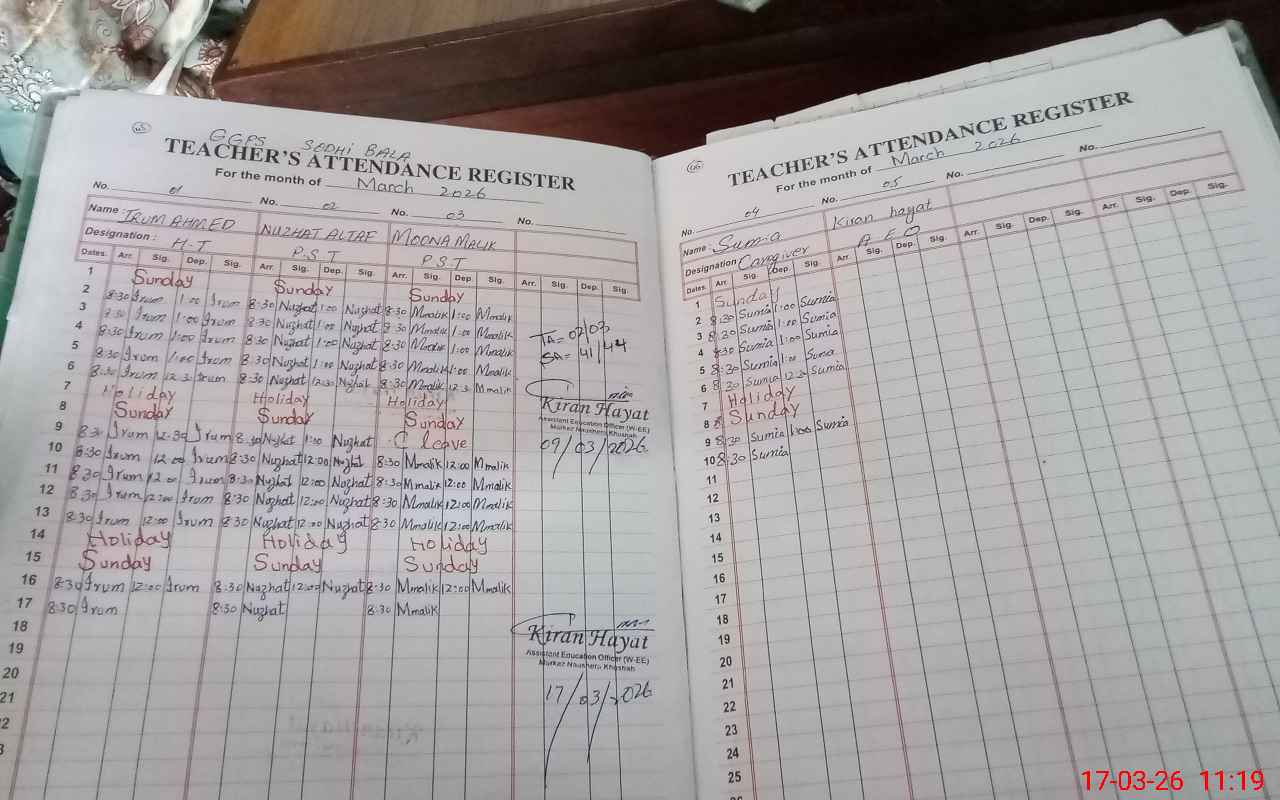 GGPS SEDHI BALA
TEACHER'S ATTENDANCE REGISTER
For the month of March 2026
No. 01 No. 02 No. 03 No.
Name: IRUM AHMED NUZHAT ALTAF MOONA MALIK
Designation: H-T P.S.T P.S.T
Dates. Arr. Sig. Dep. Sig. Arr. Sig. Dep. Sig. Arr. Sig. Dep. Sig. Arr. Sig. Dep. Sig.
1 Sunday Sunday Sunday
2 8:30 Irum 1:00 Irum 8:30 Nuzhat 1:00 Nuzhat 8:30 Mmalik 1:00 Mmalik
3 8:30 Irum 1:00 Irum 8:30 Nuzhat 1:00 Nuzhat 8:30 Mmalik 1:00 Mmalik
4 8:30 Irum 1:00 Irum 8:30 Nuzhat 1:00 Nuzhat 8:30 Mmalik 1:00 Mmalik
5 8:30 Irum 1:00 Irum 8:30 Nuzhat 1:00 Nuzhat 8:30 Mmalik 1:00 Mmalik
6 8:30 Irum 12:3 Irum 8:30 Nuzhat 12:30 Nuzhat 8:30 Mmalik 12:3 Mmalik
7 Holiday Holiday Holiday
8 Sunday Sunday Sunday
9 8:30 Irum 12:30 Irum 8:30 Nuzhat 1:00 Nuzhat C leave
10 8:30 Irum 12:00 Irum 8:30 Nuzhat 12:00 Nuzhat 8:30 Mmalik 12:00 Mmalik
11 8:30 Irum 12:00 Irum 8:30 Nuzhat 12:00 Nuzhat 8:30 Mmalik 12:00 Mmalik
12 8:30 Irum 12:00 Irum 8:30 Nuzhat 12:00 Nuzhat 8:30 Mmalik 12:00 Mmalik
13 8:30 Irum 12:00 Irum 8:30 Nuzhat 12:00 Nuzhat 8:30 Mmalik 12:00 Mmalik
14 Holiday Holiday Holiday
15 Sunday Sunday Sunday
16 8:30 Irum 12:00 Irum 8:30 Nuzhat 12:00 Nuzhat 8:30 Mmalik 12:00 Mmalik
17 8:30 Irum 8:30 Nuzhat 8:30 Mmalik
18
19
20
21
TA= 02/03
SA= 41/44
Kiran Hayat
Assistant Education Officer (W-EE)
Markaz Naushera Khushab
09/03/2026
Kiran Hayat
Assistant Education Officer (W-EE)
Markaz Naushera Khushab
17/03/2026
TEACHER'S ATTENDANCE REGISTER
For the month of March 2026
No. 04 05 No. No.
Name: Sumia Kiran hayat
Designation Cargiver A E O
Dates. Arr. Sig. Dep. Sig. Arr. Sig. Dep. Sig. Arr. Sig. Dep. Sig. Arr. Sig. Dep. Sig.
1 Sunday
2 8:30 Sumia 1:00 Sumia
3 8:30 Sumia 1:00 Sumia
4 8:30 Sumia 1:00 Sumia
5 8:30 Sumia 1:00 Suma
6 8:30 Sumia 12:30 Sumia
7 Holiday
8 Sunday
9 8:30 Sumia 1:00 Sumia
10 8:30 Sumia
11
12
13
14
15
16
17
18
19
20
21
22
23
24
25
17-03-26 11:19